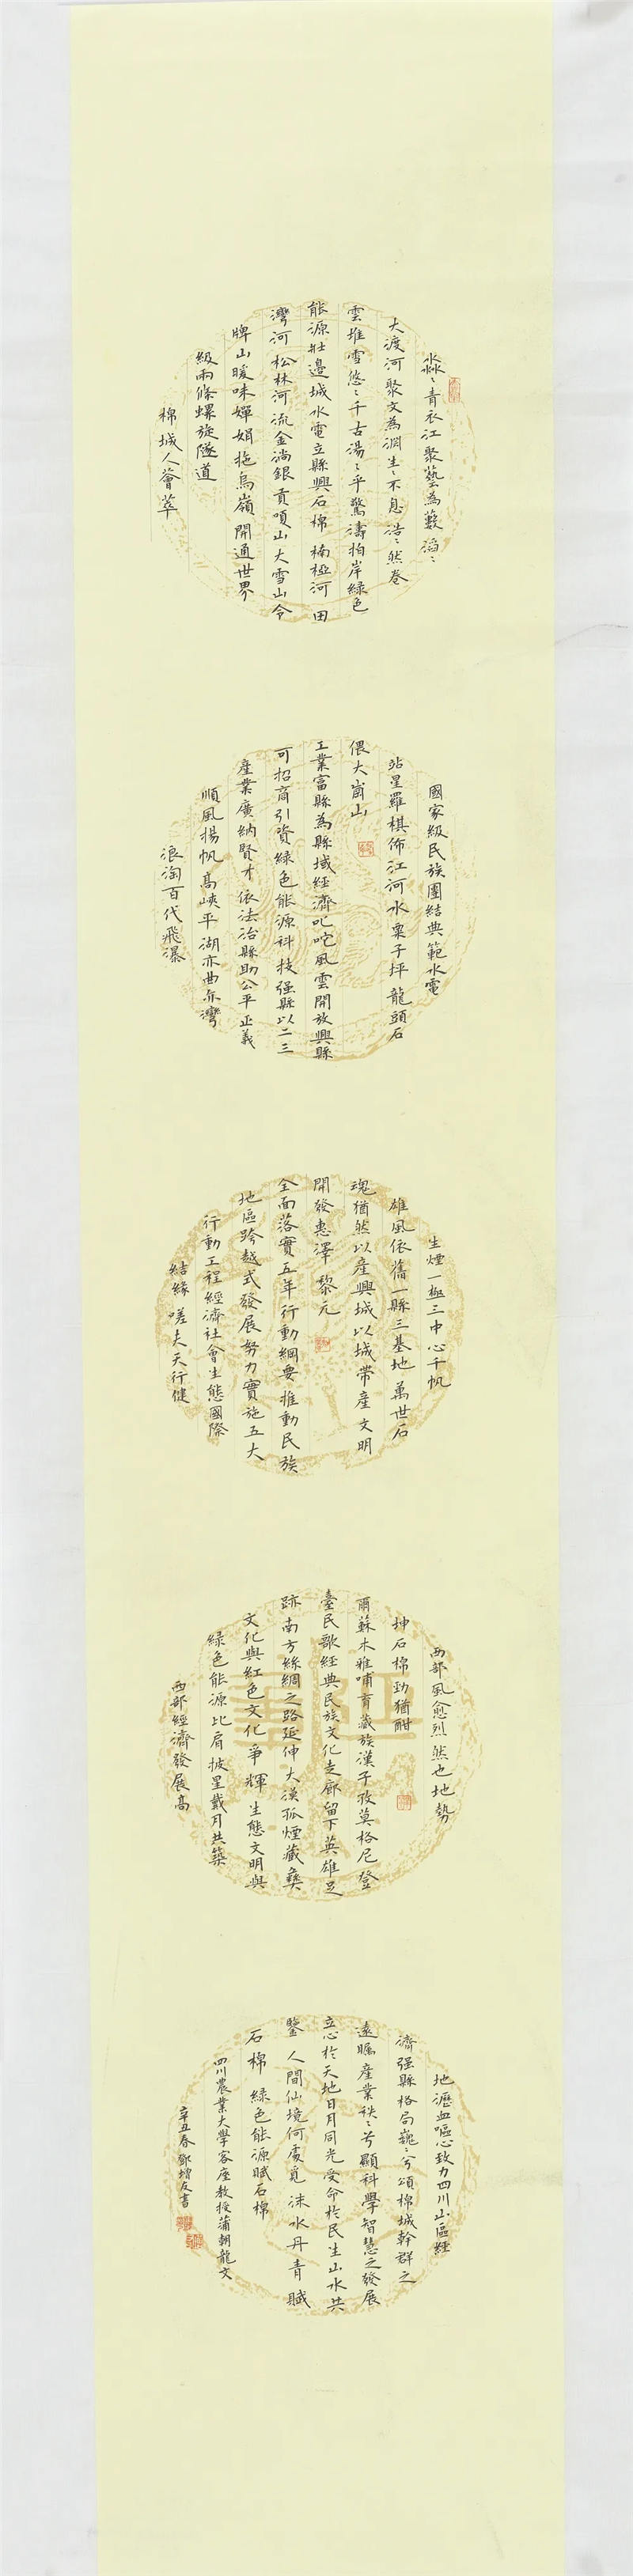 淼淼青衣江聚藝為藪滔滔
大渡河聚文為淵生生不息浩浩然卷
雲堆雪悠悠千古湯湯乎驚濤拍岸綠色
能源壯邊城水電立縣興石棉楠椏河田
灣河松林河流金淌銀貢嗄山大雪山令
牌山曖昧嬋娟拖烏嶺開通世界
級兩條螺旋隧道
棉城人薈萃
國家級民族團結典範水電
站星羅棋佈江河水栗子坪龍頭石
偎大崗山
工業富縣為縣域經濟叱咤風雲開放興縣
可招商引資綠色能源科技強縣以二三
產業廣納賢才依法治縣助公平正義
順風揚帆高峽平湖亦曲亦灣
浪淘百代飛瀑
生煙一極三中心千帆
雄風依舊一縣三基地萬世石
魂猶然以產興城以城帶產文明
開發惠澤黎元
全面落實五年行動綱要推動民族
地區跨越式發展努力實施五大
行動工程經濟社會生態國際
結緣嗟夫天行健
西部風愈烈然也地勢
坤石棉勁猶酣
爾蘇木雅哺育藏族漢子孜莫格尼登
臺民歌經典民族文化走廊留下英雄足
跡南方絲綢之路延伸大漠孤煙藏彝
文化與紅色文化爭輝生態文明與
綠色能源比肩披星戴月共築
西部經濟發展高
地瀝血嘔心致力四川山區經
濟强縣格局巍巍兮頌棉城幹群之
遠矚產業秩秩兮顯科學智慧之發展
立心於天地日月同光受命於民生山水共
鑒人間仙境何處覓沫水丹青賦
石棉綠色能源賦石棉
四川農業大學客座教授蒲朝龍文
辛丑春鄧增友書